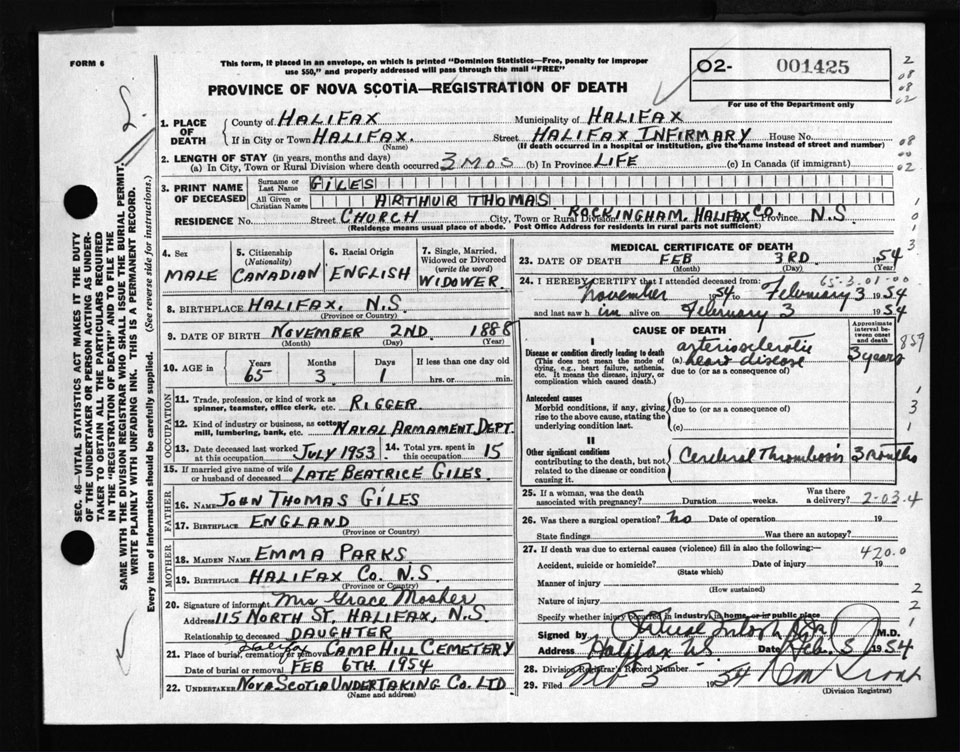 FORM 6
This form, if placed in an envelope, on which is printed "Dominion Statistics—Free, penalty for improper
use $50," and properly addressed will pass through the mail "FREE"
02- 001425
For use of the Department only
PROVINCE OF NOVA SCOTIA—REGISTRATION OF DEATH
2
08
02
08
02
1
0
1
3
SEC. 46—VITAL STATISTICS ACT MAKES IT THE DUTY
OF THE UNDERTAKER OR PERSON ACTING AS UNDER-
TAKER TO OBTAIN ALL THE PARTICULARS REQUIRED
IN THE "REGISTRATION OF DEATH" AND TO FILE THE
SAME WITH THE DIVISION REGISTRAR WHO SHALL ISSUE THE BURIAL PERMIT.
WRITE PLAINLY WITH UNFADING INK. THIS IS A PERMANENT RECORD.
Every item of information should be carefully supplied. (See reverse side for instructions.)
1. PLACE OF DEATH
County of HALIFAX Municipality of HALIFAX
If in City or Town HALIFAX. Street HALIFAX INFIRMARY House No.
(Name) (If death occurred in a hospital or institution, give the name instead of street and number)
2. LENGTH OF STAY (in years, months and days)
(a) In City, Town or Rural Division where death occurred 3 MOS (b) In Province LIFE (c) In Canada (if immigrant)
3. PRINT NAME OF DECEASED
Surname or Last Name GILES
All Given or Christian Names ARTHUR THOMAS
RESIDENCE No. Street CHURCH City, Town or Rural Division ROCKINGHAM, HALIFAX CO. Province N.S.
(Residence means usual place of abode. Post Office Address for residents in rural parts not sufficient)
4. Sex
MALE
5. Citizenship (Nationality)
CANADIAN
6. Racial Origin
ENGLISH
7. Single, Married, Widowed or Divorced (write the word)
WIDOWER
8. BIRTHPLACE HALIFAX, N.S.
(Province or Country)
9. DATE OF BIRTH NOVEMBER 2ND 1888
(Month) (Day) (Year)
10. AGE in Years Months Days If less than one day old
65 3 1 hrs. or min.
OCCUPATION
11. Trade, profession, or kind of work as
spinner, teamster, office clerk, etc. RIGGER
12. Kind of industry or business, as cotton
mill, lumbering, bank, etc. NAVAL ARMAMENT DEPT.
13. Date deceased last worked at this occupation JULY 1953 14. Total yrs. spent in this occupation 15
15. If married give name of wife
or husband of deceased LATE BEATRICE GILES
FATHER
16. NAME JOHN THOMAS GILES
17. BIRTHPLACE ENGLAND
(Province or Country)
MOTHER
18. MAIDEN NAME EMMA PARKS
19. BIRTHPLACE HALIFAX CO. N.S.
(Province or Country)
20. Signature of informant Mrs Grace Mosher
Address 115 NORTH ST, HALIFAX, N.S.
Relationship to deceased DAUGHTER
21. Place of burial, cremation or removal Halifax CAMP HILL CEMETERY
Date of burial or removal FEB 6TH. 1954
22. UNDERTAKER NOVA SCOTIA UNDERTAKING CO. LTD
(Name and address)
MEDICAL CERTIFICATE OF DEATH
23. DATE OF DEATH FEB 3RD 1954
(Month) (Day) (Year)
24. I HEREBY CERTIFY that I attended deceased from: 65-3.01-00
November 1954 to February 3 1954
and last saw him alive on February 3 1954
CAUSE OF DEATH
Approximate interval between onset and death
859
I
Disease or condition directly leading to death
(This does not mean the mode of
dying, e.g., heart failure, asthenia,
etc. It means the disease, injury, or
complication which caused death.)
(a) arteriosclerotic heart disease 3 years
due to (or as a consequence of)
Antecedent causes
Morbid conditions, if any, giving
rise to the above cause, stating the
underlying condition last.
(b)
due to (or as a consequence of)
(c)
1
3
1
II
Other significant conditions
contributing to the death, but not
related to the disease or condition
causing it.
Cerebral Thrombosis 3 months
25. If a woman, was the death
associated with pregnancy? Duration weeks. Was there a delivery? 2-03.4
26. Was there a surgical operation? no Date of operation 19
State findings Was there an autopsy?
27. If death was due to external causes (violence) fill in also the following:— 420.0
Accident, suicide or homicide? Date of injury 19
(State which)
Manner of injury
(How sustained)
Nature of injury
2
2
1
Specify whether injury occurred in industry, in home, or in public place
Signed by M.D.
Address Halifax N.S. Date Feb. 3 1954
28. Division Registrar's Record Number
29. Filed 3 1954
(Division Registrar)